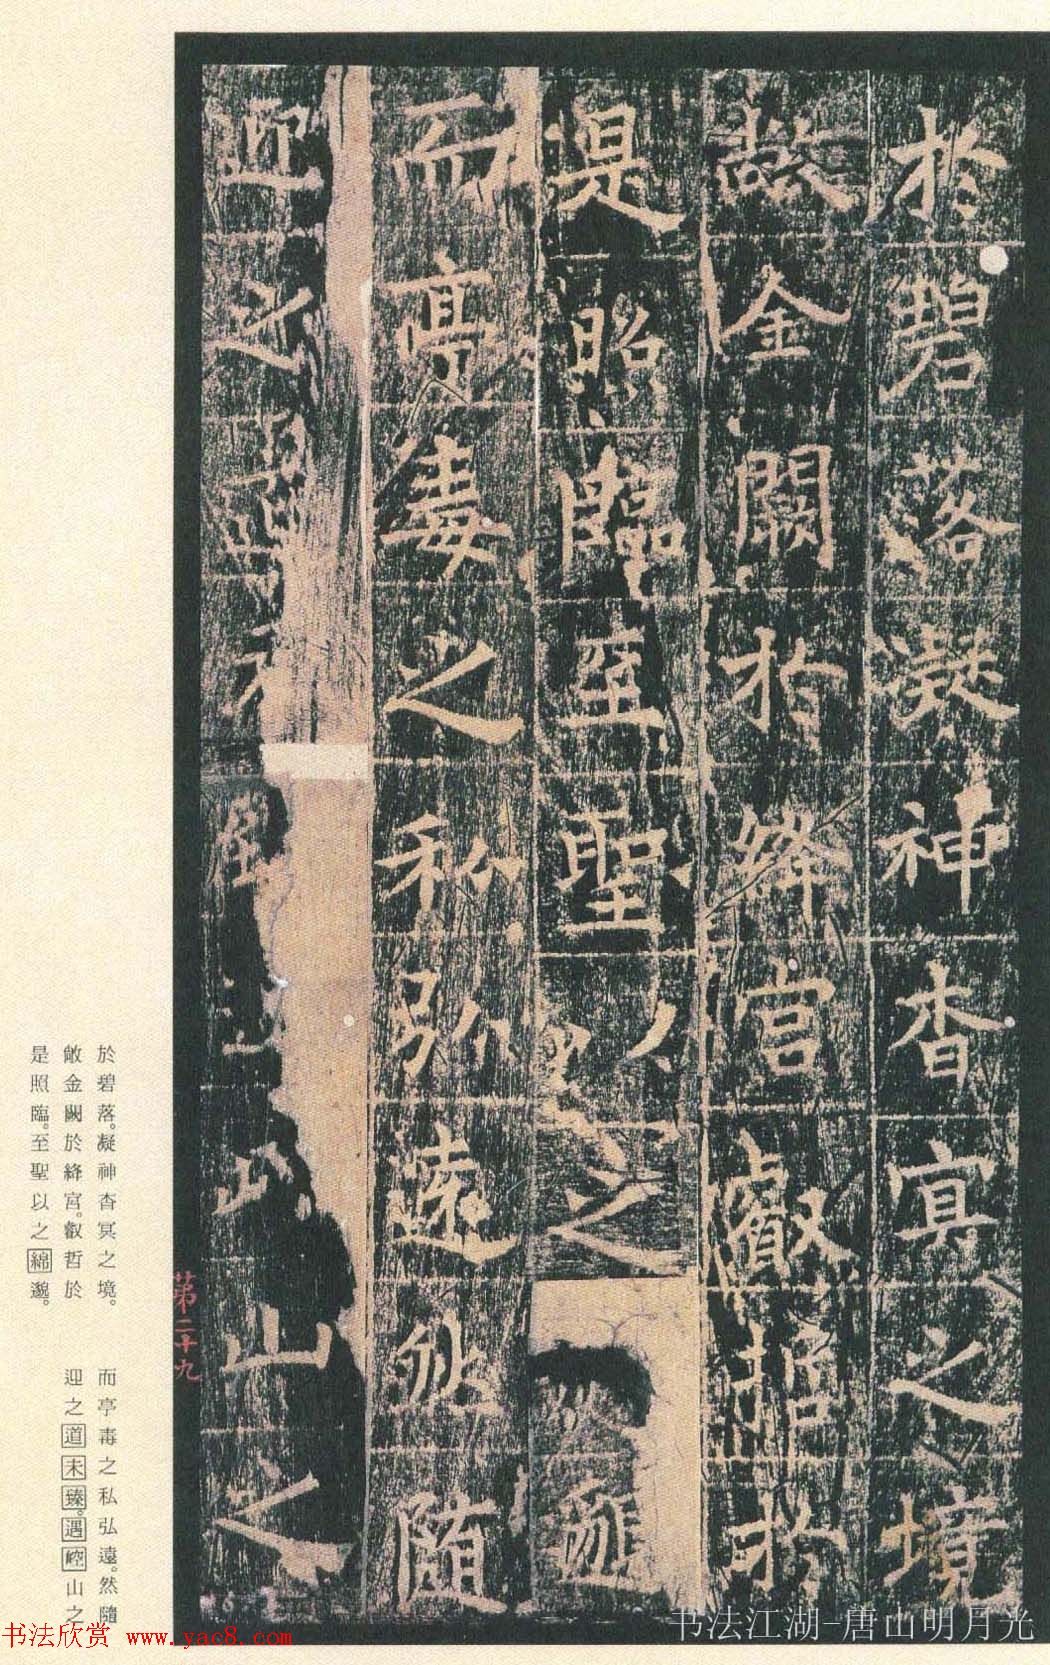 於碧落凝神杳冥之境
敞金闕於絳宮叡哲於
是照臨至聖以之邈
而亭毒之私弘遠然隨
迎之山之
第二十九
於碧落。凝神杳冥之境。
敞金闕於絳宮。叡哲於
是照臨。至聖以之綿邈。
而亭毒之私弘遠。然隨
迎之道未臻。遇崆山之
书法欣赏 www.yac8.com
书法江湖-唐山明月光